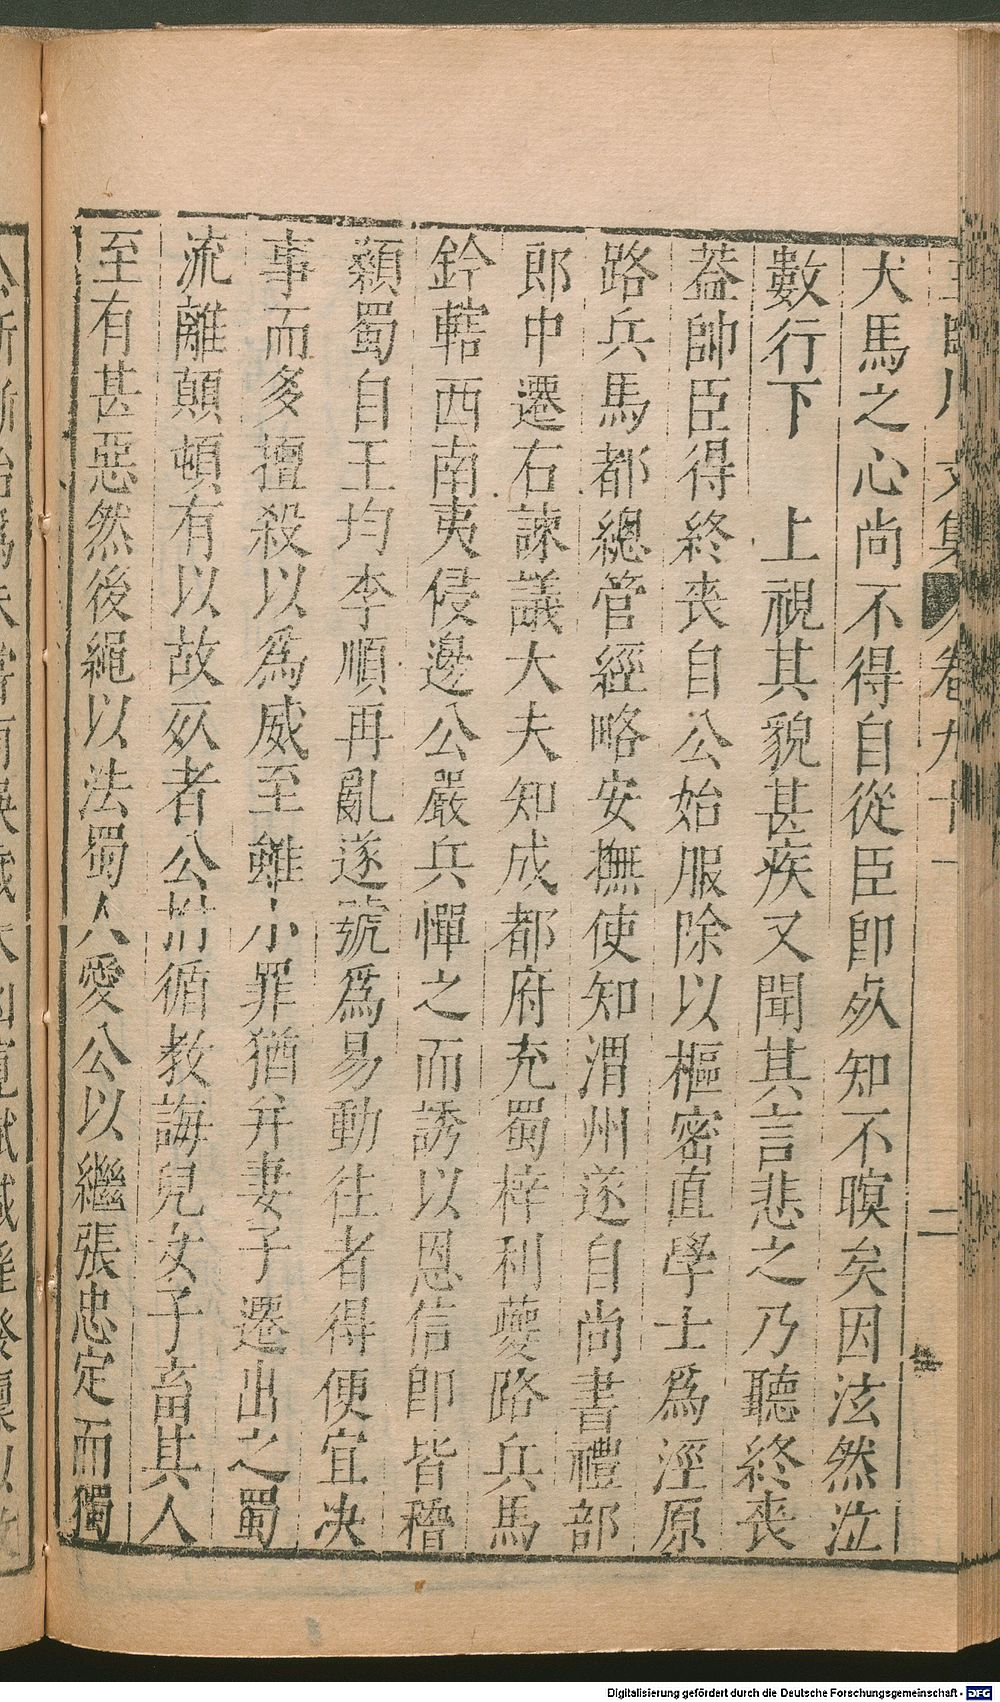 犬馬之心尚不得自從臣即死知不瞑矣因泫然泣
數行下　上視其貌甚疾又聞其言悲之乃聽終喪
葢帥臣得終喪自公始服除以樞密直學士爲涇原
路兵馬都總管經略安撫使知渭州遂自尚書禮部
郎中遷右諫議大夫知成都府充蜀梓利夔路兵馬
鈐轄西南夷侵邊公嚴兵憚之而誘以恩信即皆稽
顙蜀自王均李順再亂遂號爲易動往者得便宜决
事而多擅殺以爲威至雖小罪猶并妻子遷出之蜀
流離顛頓有以故死者公拊循教誨兒女子畜其人
至有甚惡然後繩以法蜀人愛公以繼張忠定而獨
文集
卷九十
二
Digitalisierung gefördert durch die Deutsche Forschungsgemeinschaft - DFG